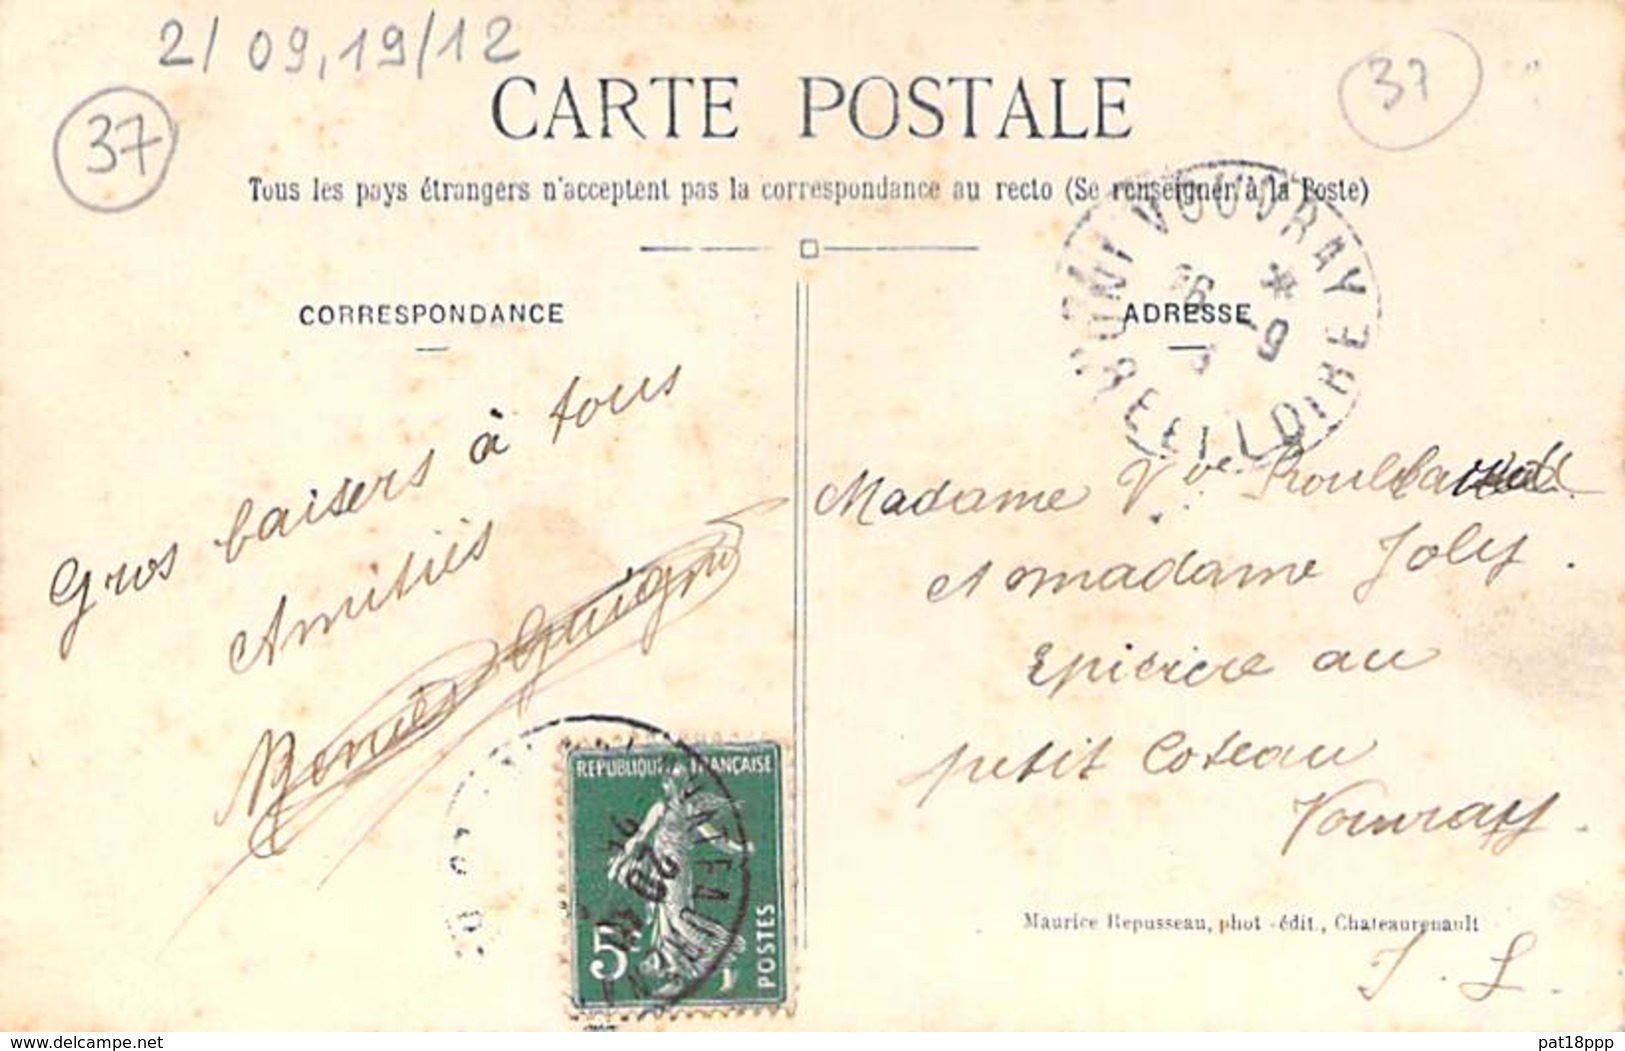 2/ 09, 19/12
37
37
CARTE POSTALE
Tous les pays étrangers n'acceptent pas la correspondance au recto (Se renseigner à la Poste)
VOUVRAY
INDRE ET LOIRE
CORRESPONDANCE
Gros baisers à tous
Amitiés
ADRESSE
Madame Vve
et madame Joly.
Epicière au
petit Coteau
Vouvray.
I. L.
REPUBLIQUE FRANÇAISE
5c
POSTES
20
Maurice Repusseau, phot-édit., Chateaurenault
delcampe.net
pat18ppp